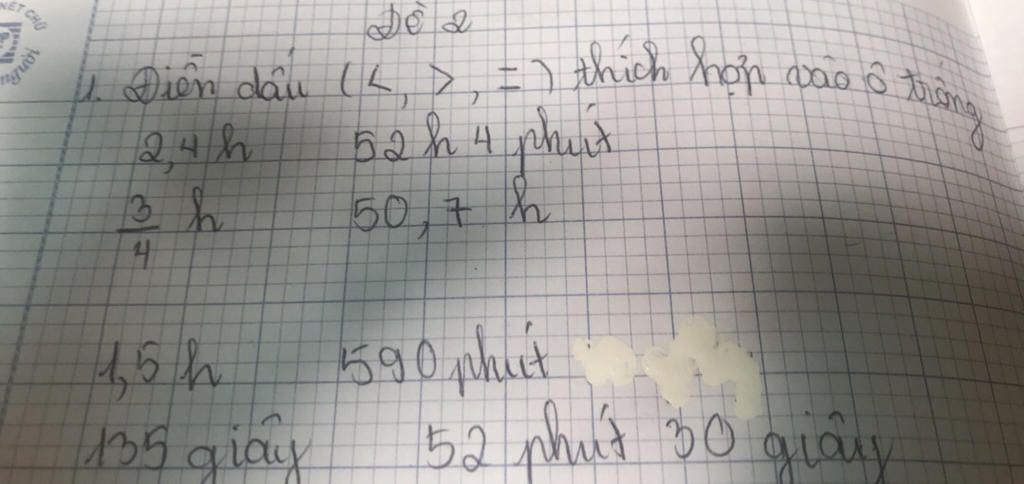 NÉT CHỮ
người
Đề 2
1. Điền dấu (<, >, =) thích hợp vào ô trống
2,4 h 52 h 4 phút
3/4 h 50,7 h
1,5 h 590 phút
135 giây 52 phút 30 giây